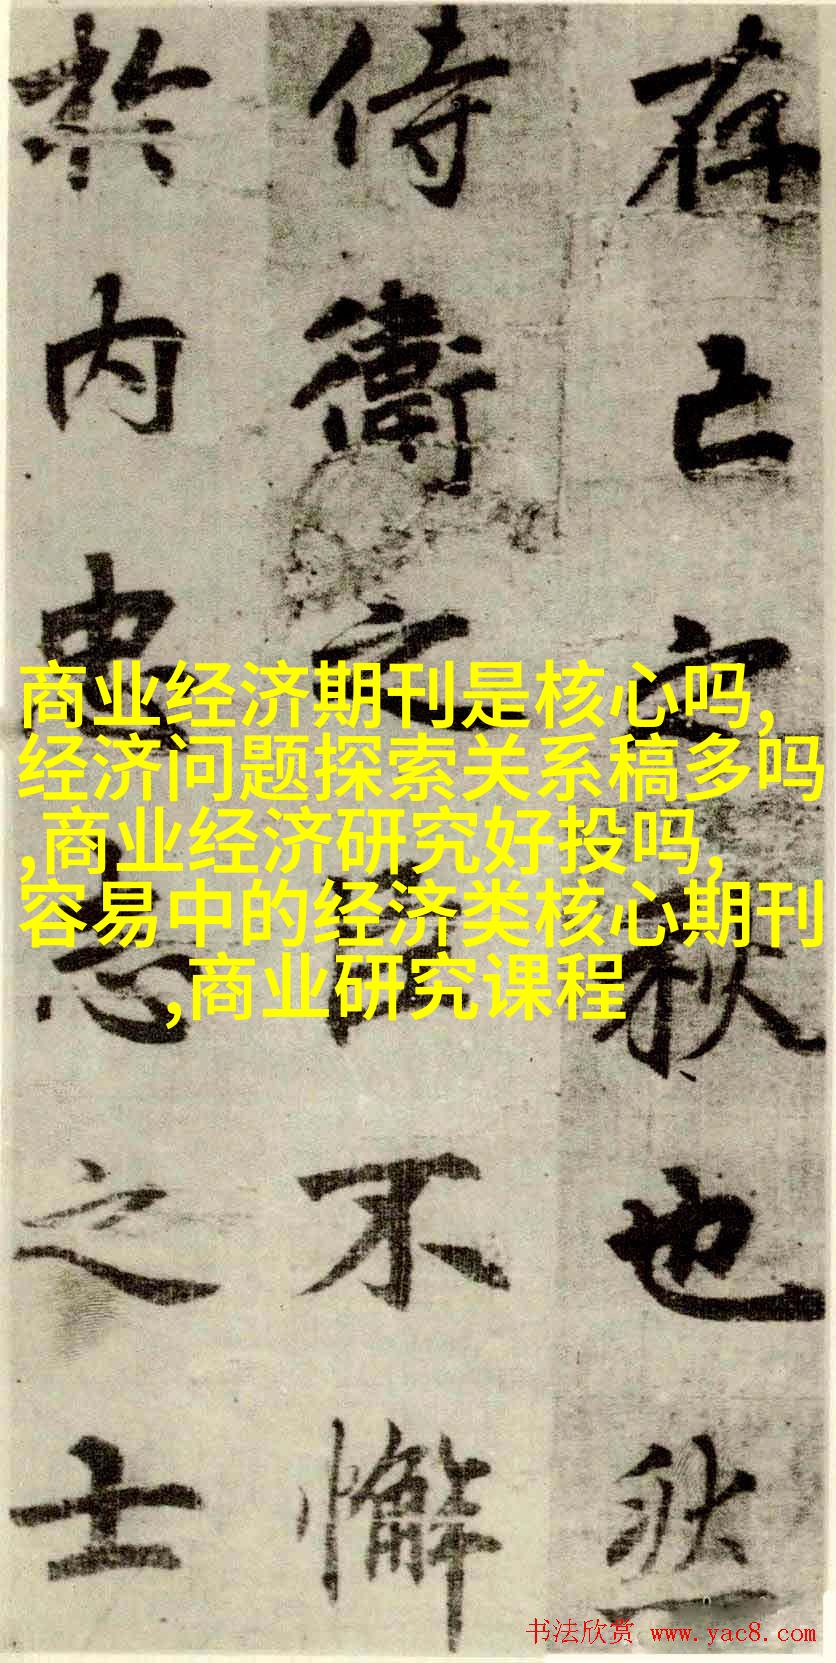 存亡之秋也然
侍衛之臣不懈
於内忠志之士
商业经济期刊是核心吗,
经济问题探索关系稿多吗
,商业经济研究好投吗,
容易中的经济类核心期刊
,商业研究课程
书法欣赏 www.yac8.com